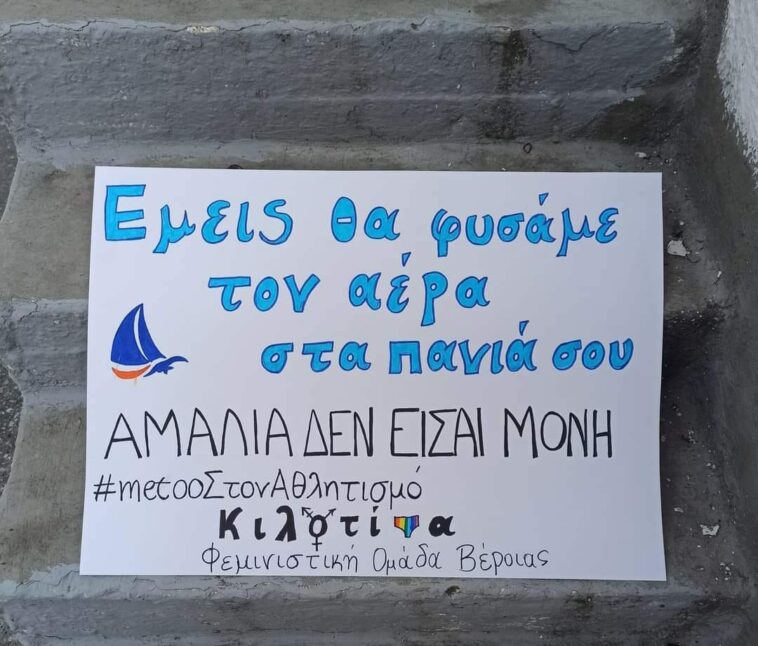 Εμεις θα φυσάμε
τον αέρα
στα πανιά σου
ΑΜΑΛΙΑ ΔΕΝ ΕΙΣΑΙ ΜΟΝΗ
#metooΣτονΑθλητισμό
Κιλοτίνα
Φεμινιστική Ομάδα Βέροιας